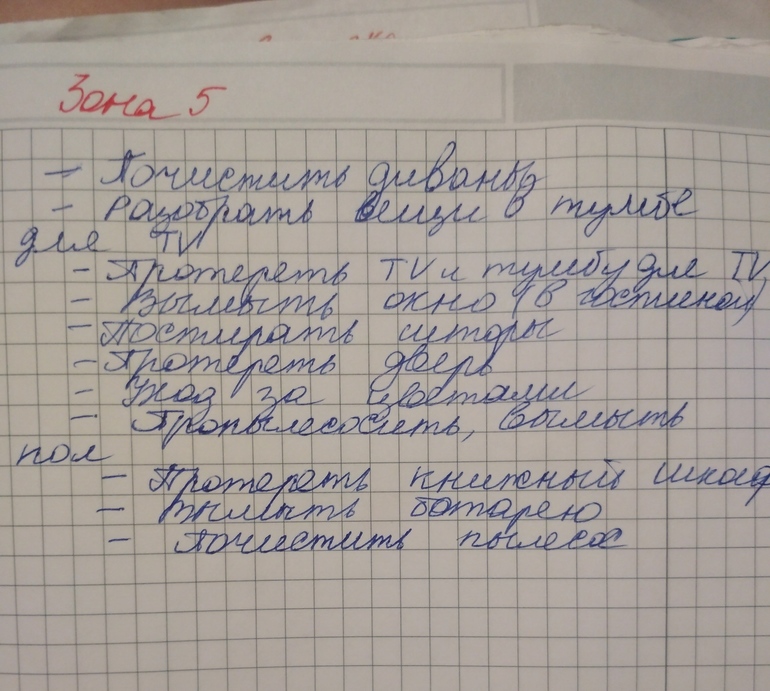 Зона 5
- Почистить диваны
- Разобрать вещи в тумбе
для TV
- Протереть TV и тумбу для TV
- Вымыть окно (в гостиной)
- Постирать шторы
- Протереть дверь
- Уход за цветами
- Пропылесосить, вымыть
пол
- Протереть книжный шкаф
- Вымыть батарею
- Почистить пылесос